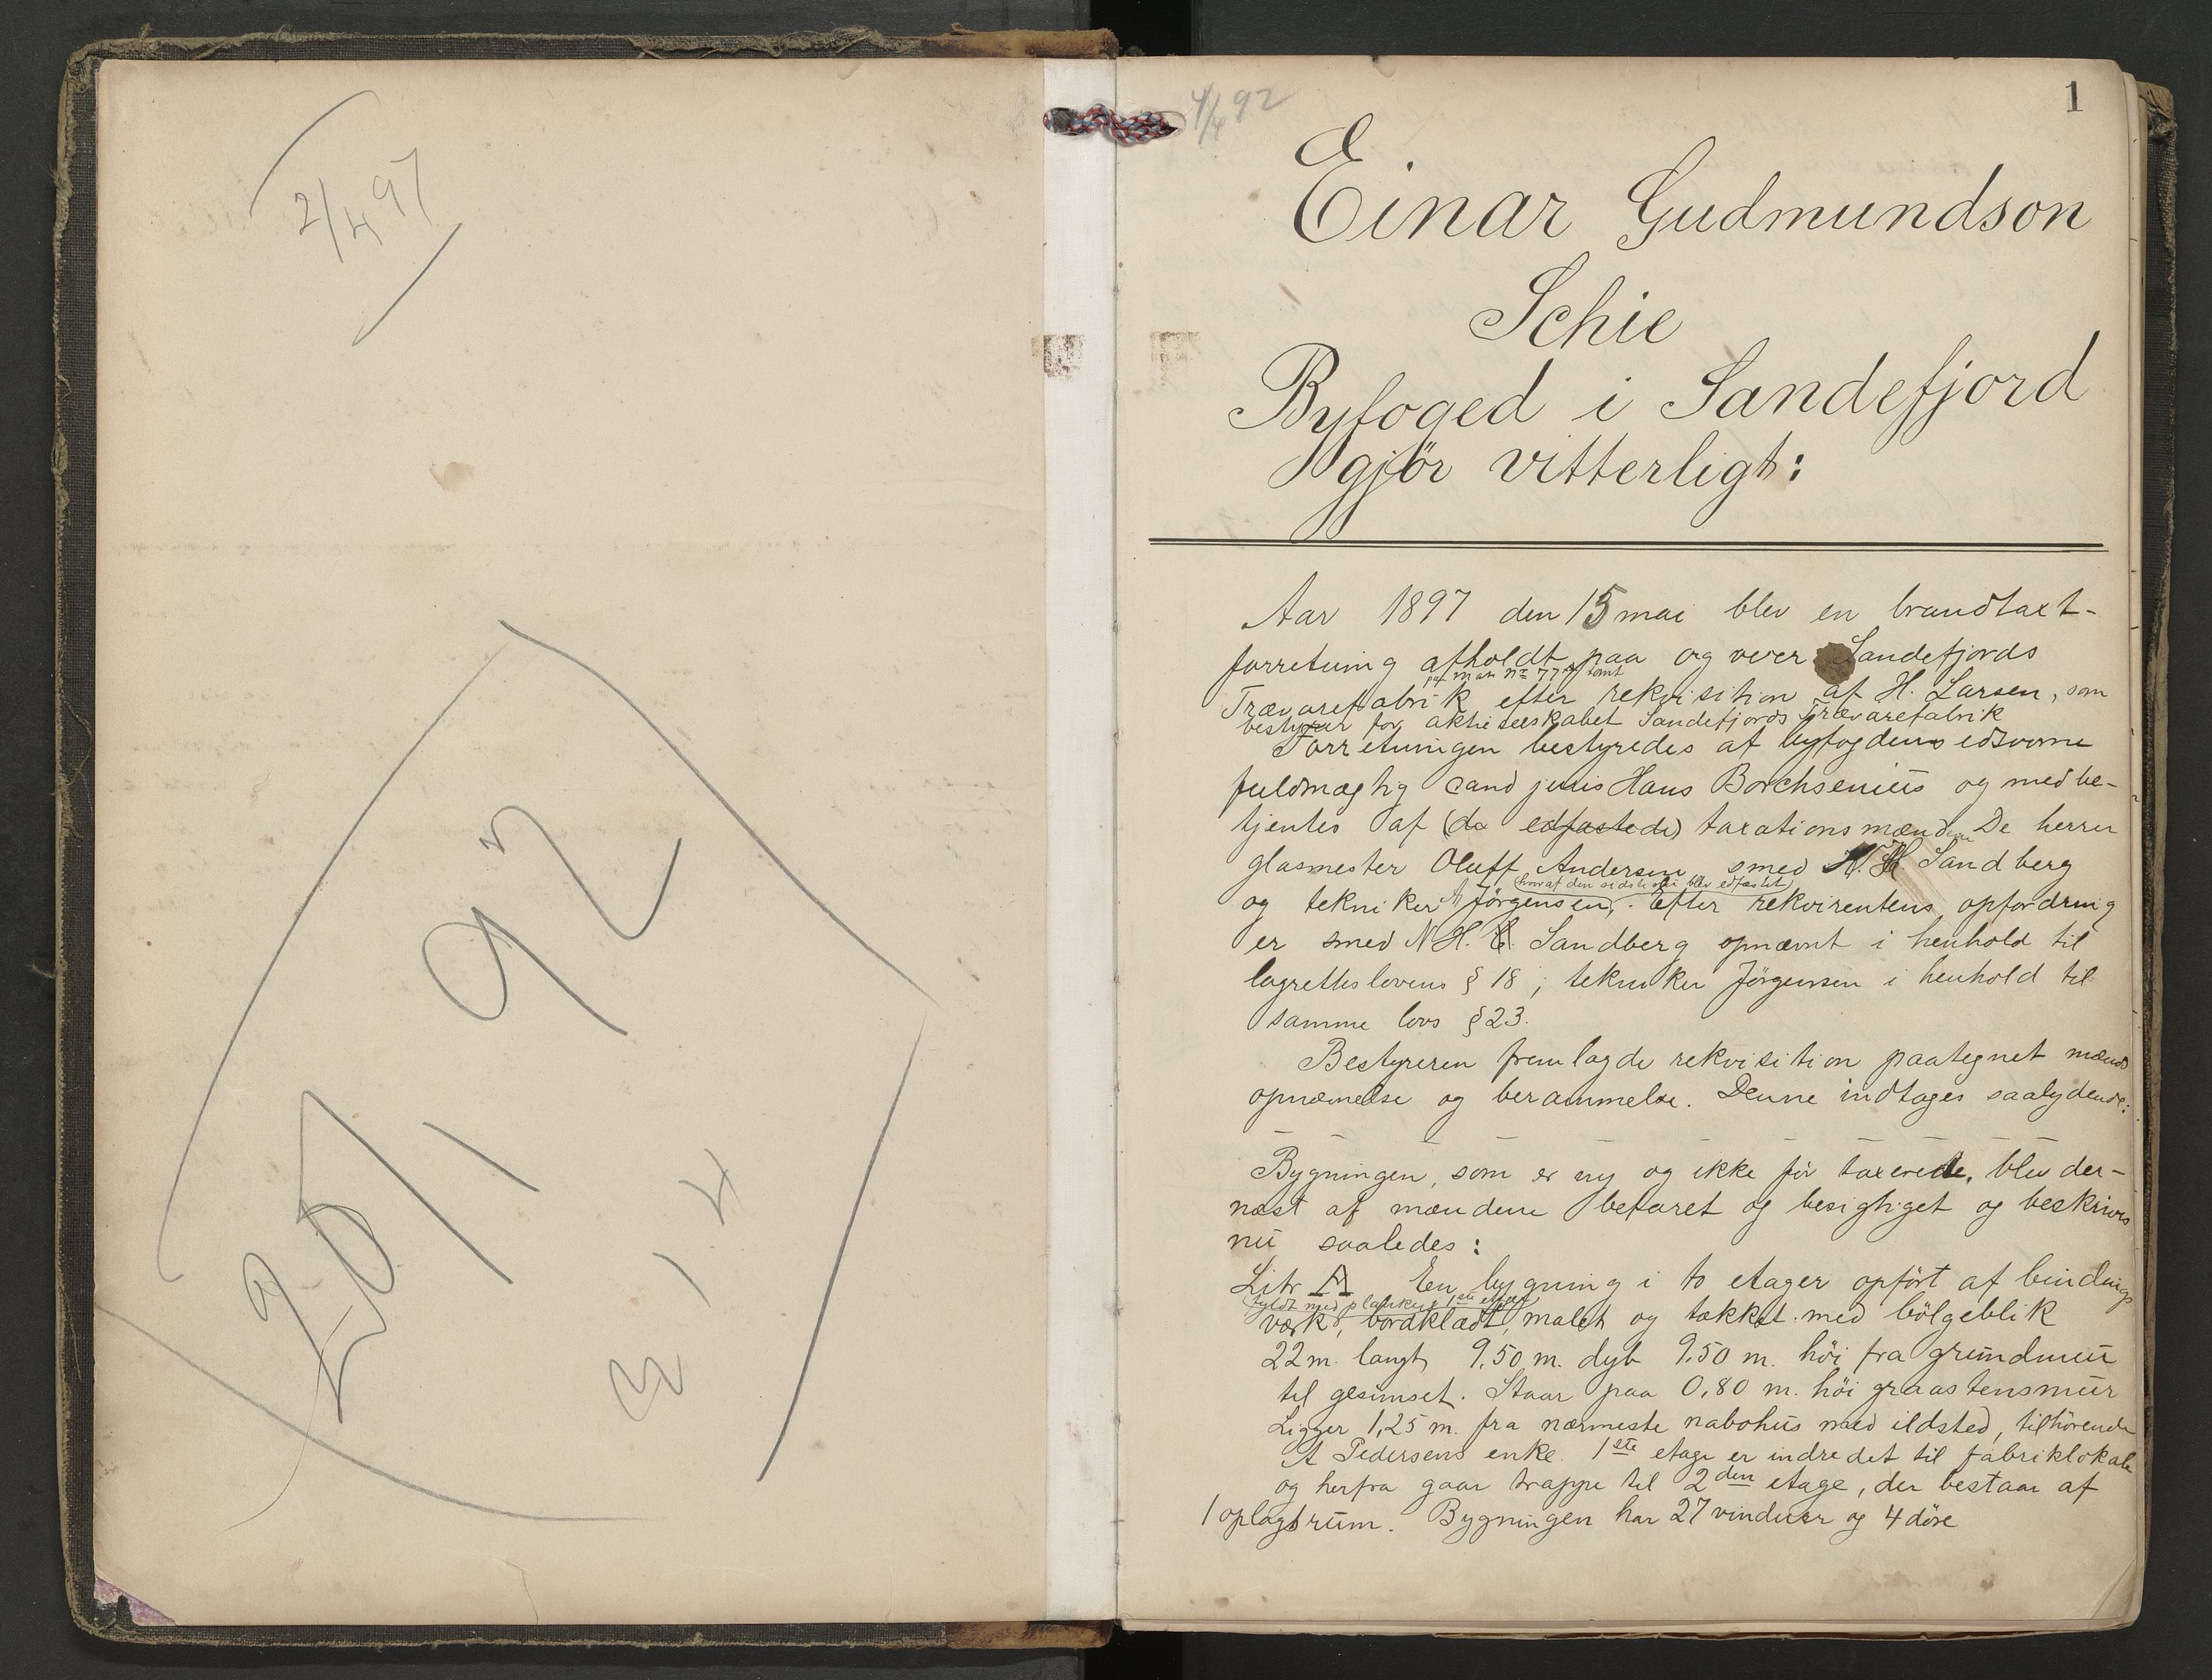 2/4 97
4/4 92
1
Einar Gudmundson
Schie
Byfoged i Sandefjord
gjör vitterligt:
Aar 1897 den 15 mai blev en brandtaxt-
forretning afholdt paa og over Sandefjords
paa Matr No 77 tomt
Trævarefabrik efter rekvisition af H. Larsen, som
bestyrer for aktieselskabet Sandefjords Trævarefabrik
Forretningen bestyredes af byfogdens edsvorne
fuldmægtig cand juris Hans Borchsenius og med be-
tjentes af (de edfæstede) taxationsmænd De herrer
glasmester Oluff Andersen smed N. H. Sandberg
(hvoraf den sidste blev edfæstet)
og tekniker A Jörgensen, . Efter rekvirentens opfordring
er smed N H. Sandberg opnævnt i henhold til
lagretteslovens § 18 ; tekniker Jörgensen i henhold til
samme lovs § 23.
Bestyreren fremlagde rekvisition paategnet mænds
opnævnelse og berammelse. Denne indtages saalydende:
Bygningen, som er ny og ikke för taxerede, blev der-
næst af mændene befaret og besigtiget og beskrives
nu saaledes:
Litr A En bygning i to etager opfört af bindings
fyldt med planker i 1ste etage
værk, bordklædt, malet og tækket med bölgeblik
22 m. langt, 9,50 m. dyb 9,50 m. höi fra grundmur
til gesimset. Staar paa 0,80 m. höi graastensmur
Ligger 1,25 m. fra nærmeste nabohus med ildsted, tilhörende
A Pedersens enke. 1ste etage er indredet til fabriklokale
og herfra gaar trappe til 2den etage, der bestaar af
1 oplagsrum. Bygningen har 27 vinduer og 4 döre